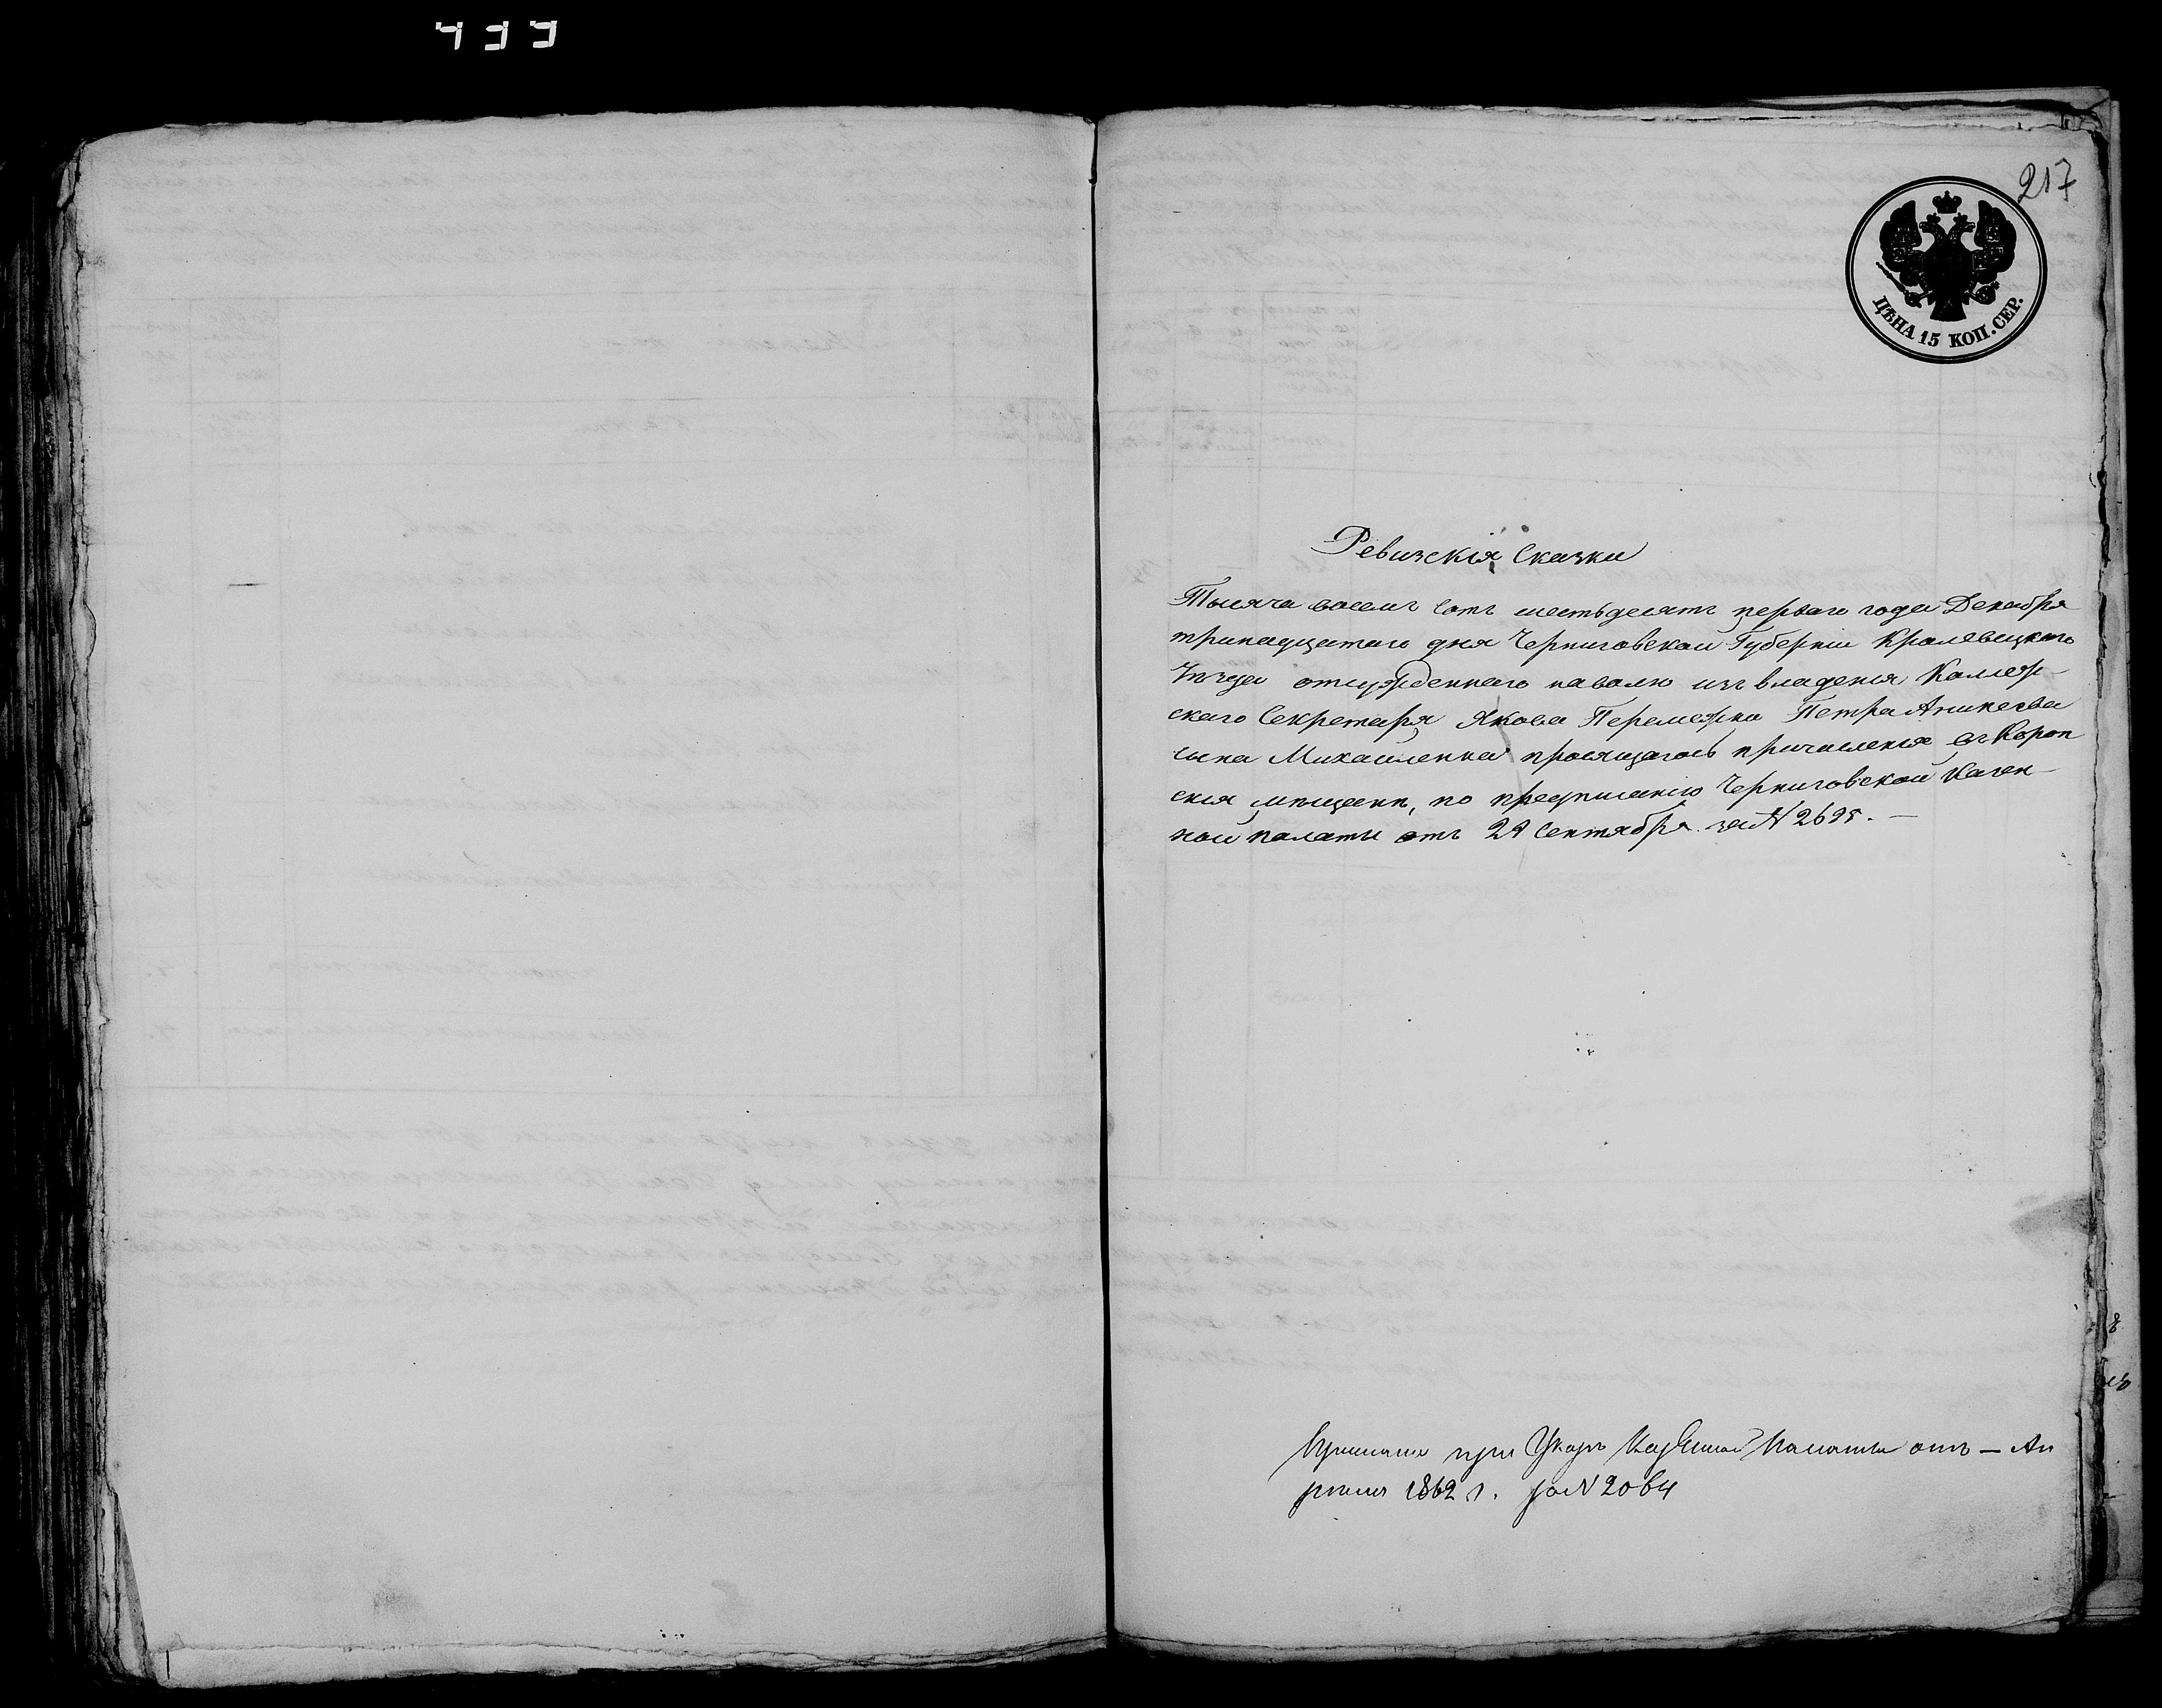 433
217
ЦѢНА 15 КОП. СЕР.
Ревизскія Сказки
Тысяча восемь сотъ шестьдесятъ перваго года Декабря
тринадцатаго дня Черниговской Губерніи Кролевецкаго
Уѣзда отчужденнаго наволю изъ владенія Коллеж-
скаго Секретаря Якова Перемежка Петра Аникеева
сына Михайленка просящагось причисленія въ Короп
скія мѣщане, по предписанію Черниговской Казен-
ной палаты отъ 29 Сентября за N 2695.—
при Указѣ Казенной Палаты отъ — Ап
рѣля 1862 г. за N 2064